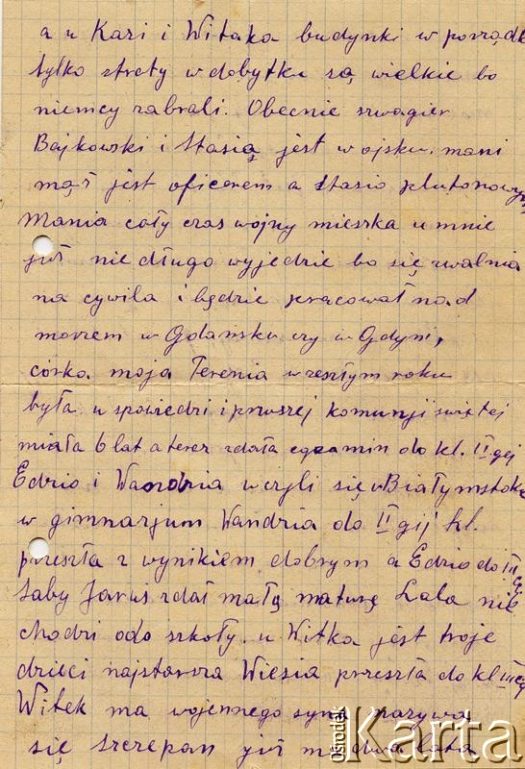 a u Kazi i Witaka budynki w porządk
tylko straty w dobytku są wielkie bo
niemcy zabrali. Obecnie szwagier
Bajkowski i Stasią jest w ojsku. mani
mąż jest oficerem a Stasio plutonowym
Mania cały czas wojny mieszka u mnie
już nie długo wyjedzie bo się zwalnia
na cywila i będzie pracował nad
morzem w Gdańsku czy w Gdyni,
córka moja Terenia w zeszłym roku
była u spowiedzi i pirwszej komunji świętej
miała 6 lat a terez zdała egzamin do kl. II giej
Edzio i Wandzia w czyli się w Białymstoku
w gimnazjum Wandzia do II gij kl.
przeszła z wynikiem dobrym a Edzio do
Saby Jaruś zdał małą maturę Lala nie
chodzi odo szkoły. u Witka jest troje
dzieci najstarsza Wiesia przeszła do kl III
Witek ma wojennego syna nazywa
się Szczepan już ma dwa lata
Ośrodek Karta